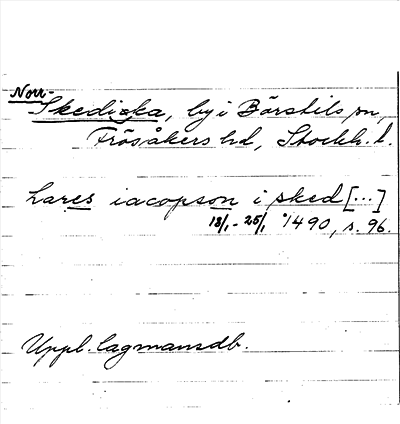 Norr-
Skediska, by i Börstils sn,
Frösåkers hd, Stockh. l.
lares iacopson i sked [...]
18/1 - 25/1 1490, s. 96.
Uppl. lagmansdb.